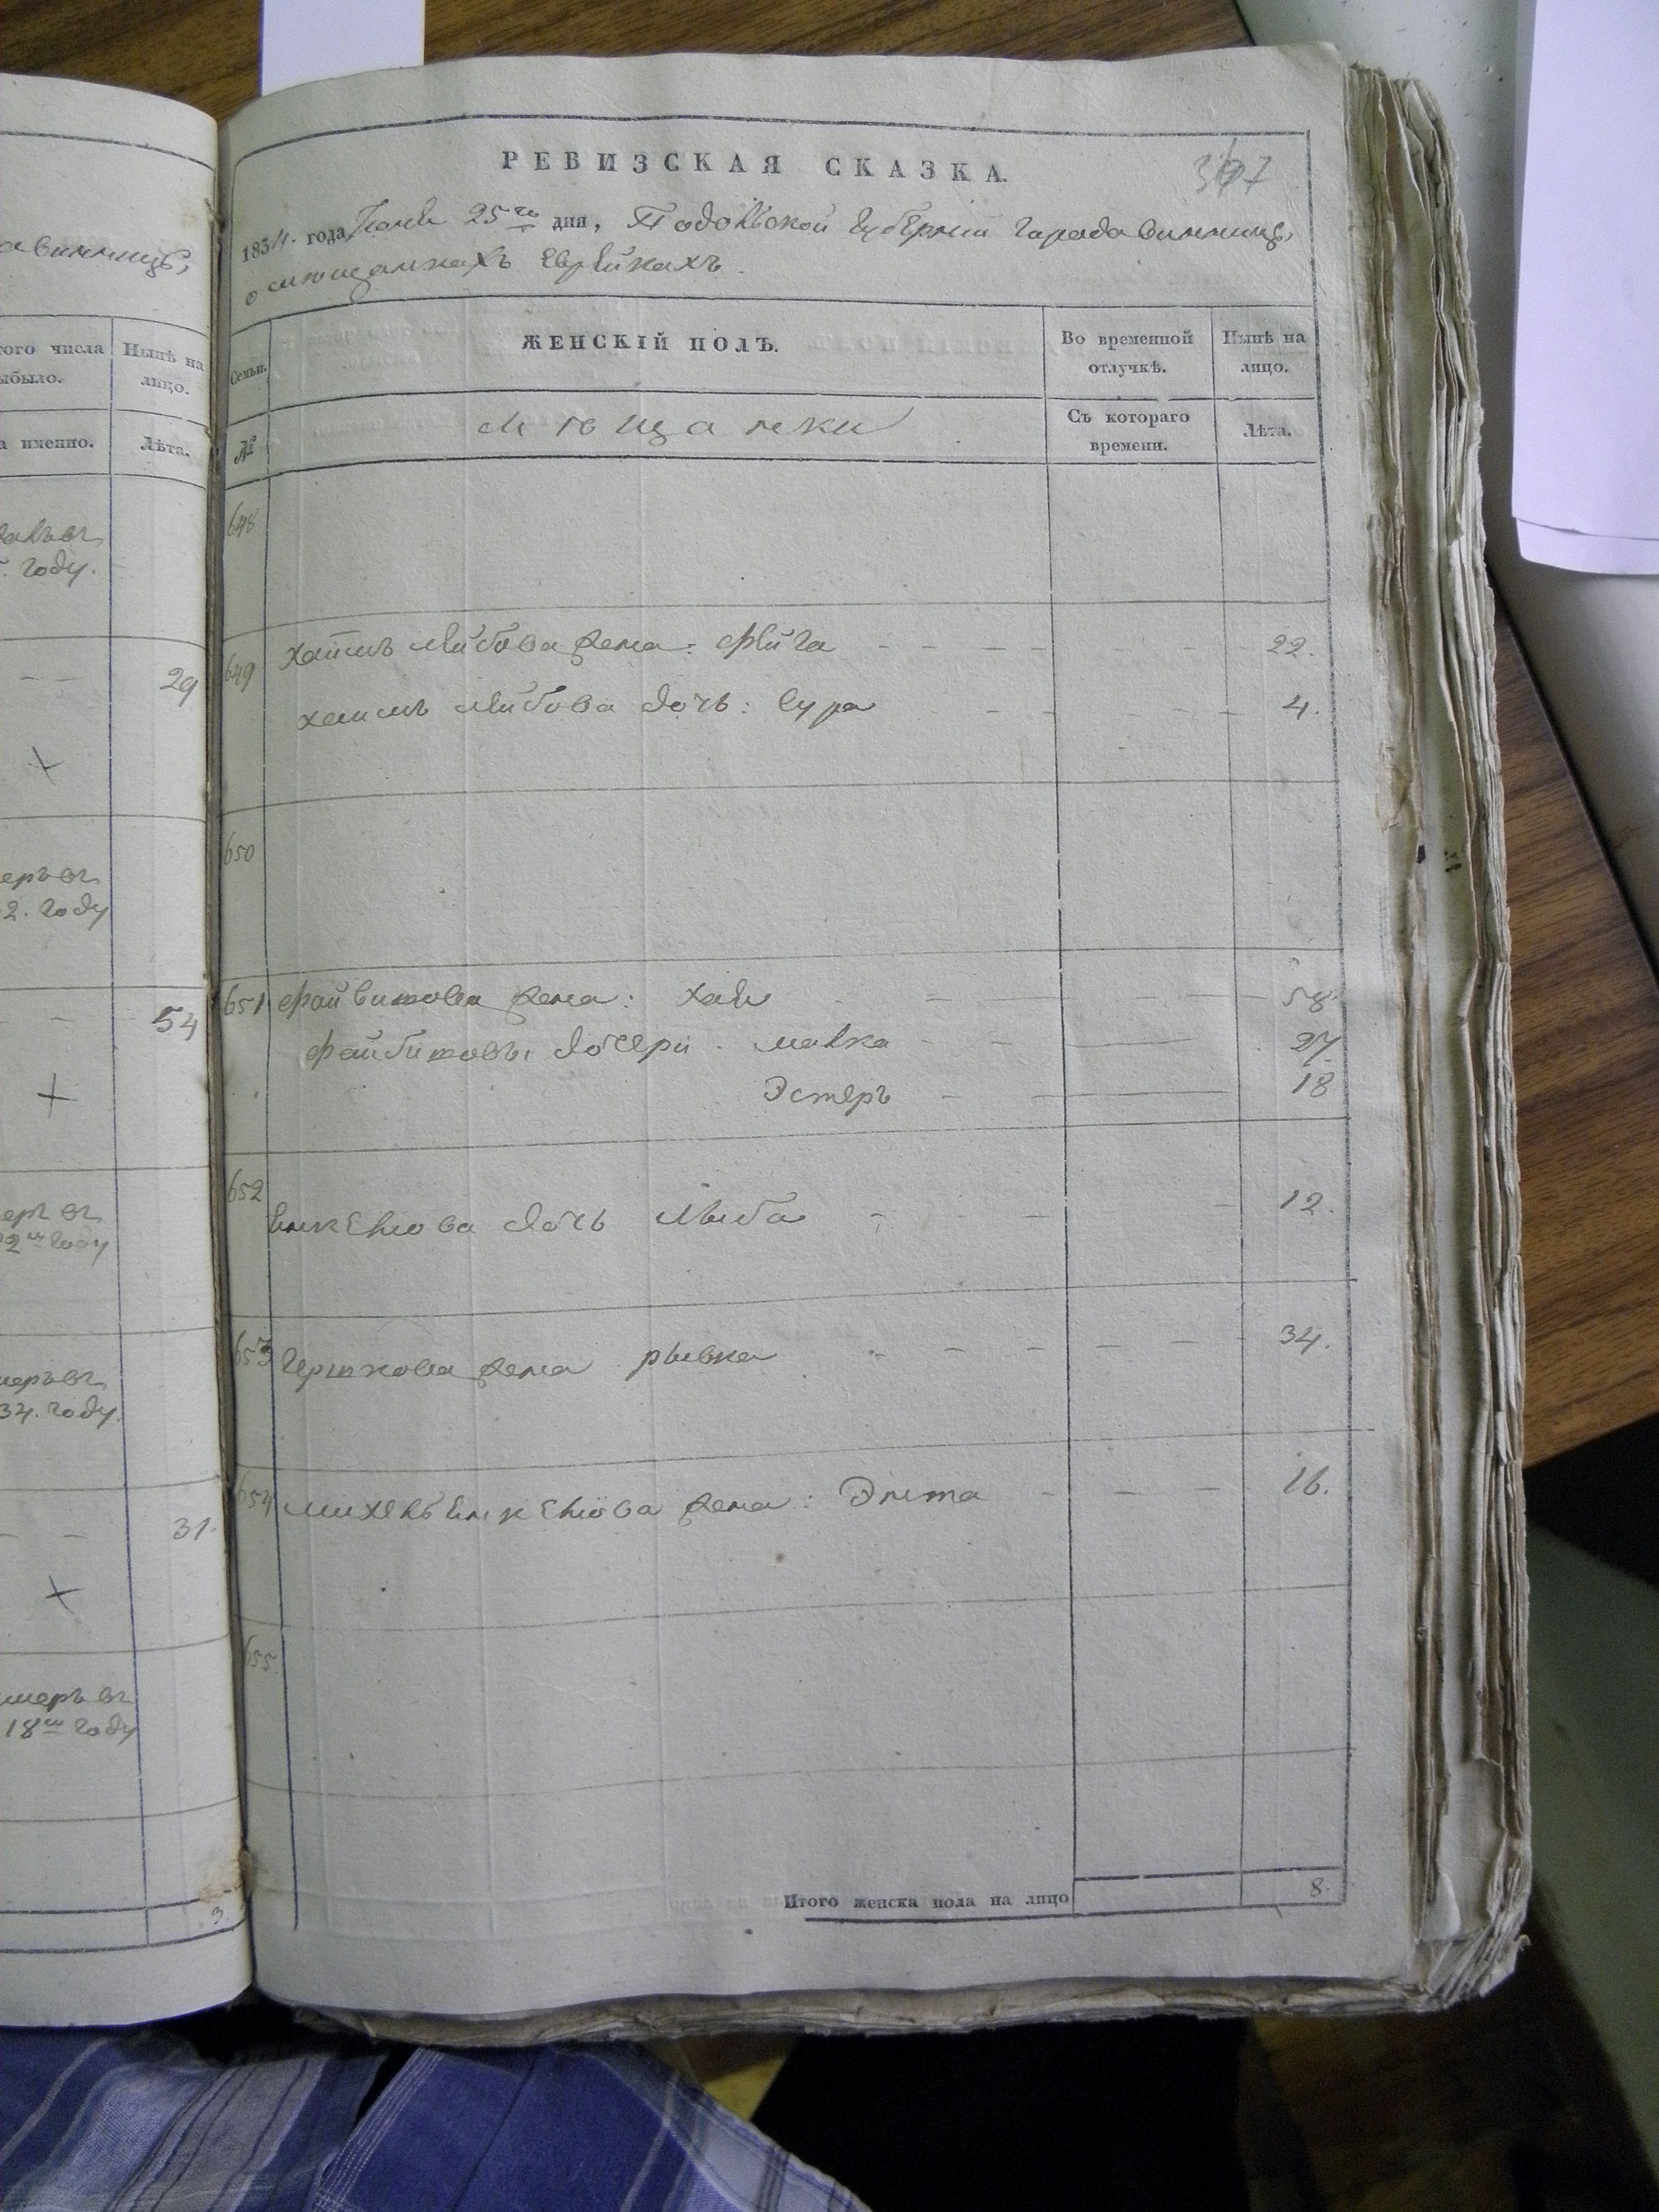 авинницѣ,
того числа
выбыло.
Нынѣ на
лицо.
а именно.
Лѣта.
году.
29
еръ въ
2. году
54
еръ въ
2мъ году
меръ въ
34. году.
31.
умеръ въ
18мъ году
3
РЕВИЗСКАЯ СКАЗКА.
1834. года 25го дня, Подольской Губерніи Города Винницѣ,
о мѣщанкахъ Еврейкахъ.
Семьи.
ЖЕНСКІЙ ПОЛЪ.
Во временной
отлучкѣ.
Нынѣ на
лицо.
№
Мѣщанки
Съ котораго
времени.
Лѣта.
648
649 Хаимъ Лейбова жена: Фейга 22.
Хаимъ Лейбова дочь: Сура 4.
650
651 Файвишова жена: Хая 58.
Файбишовы дочери Малка 27.
Эстеръ 18
652
Янкелiова дочь Лыба 12.
653 Гершкова жена рывка 34.
654 Михель Янкелiова жена: Энта 16.
655.
Итого женска пола на лицо 8.